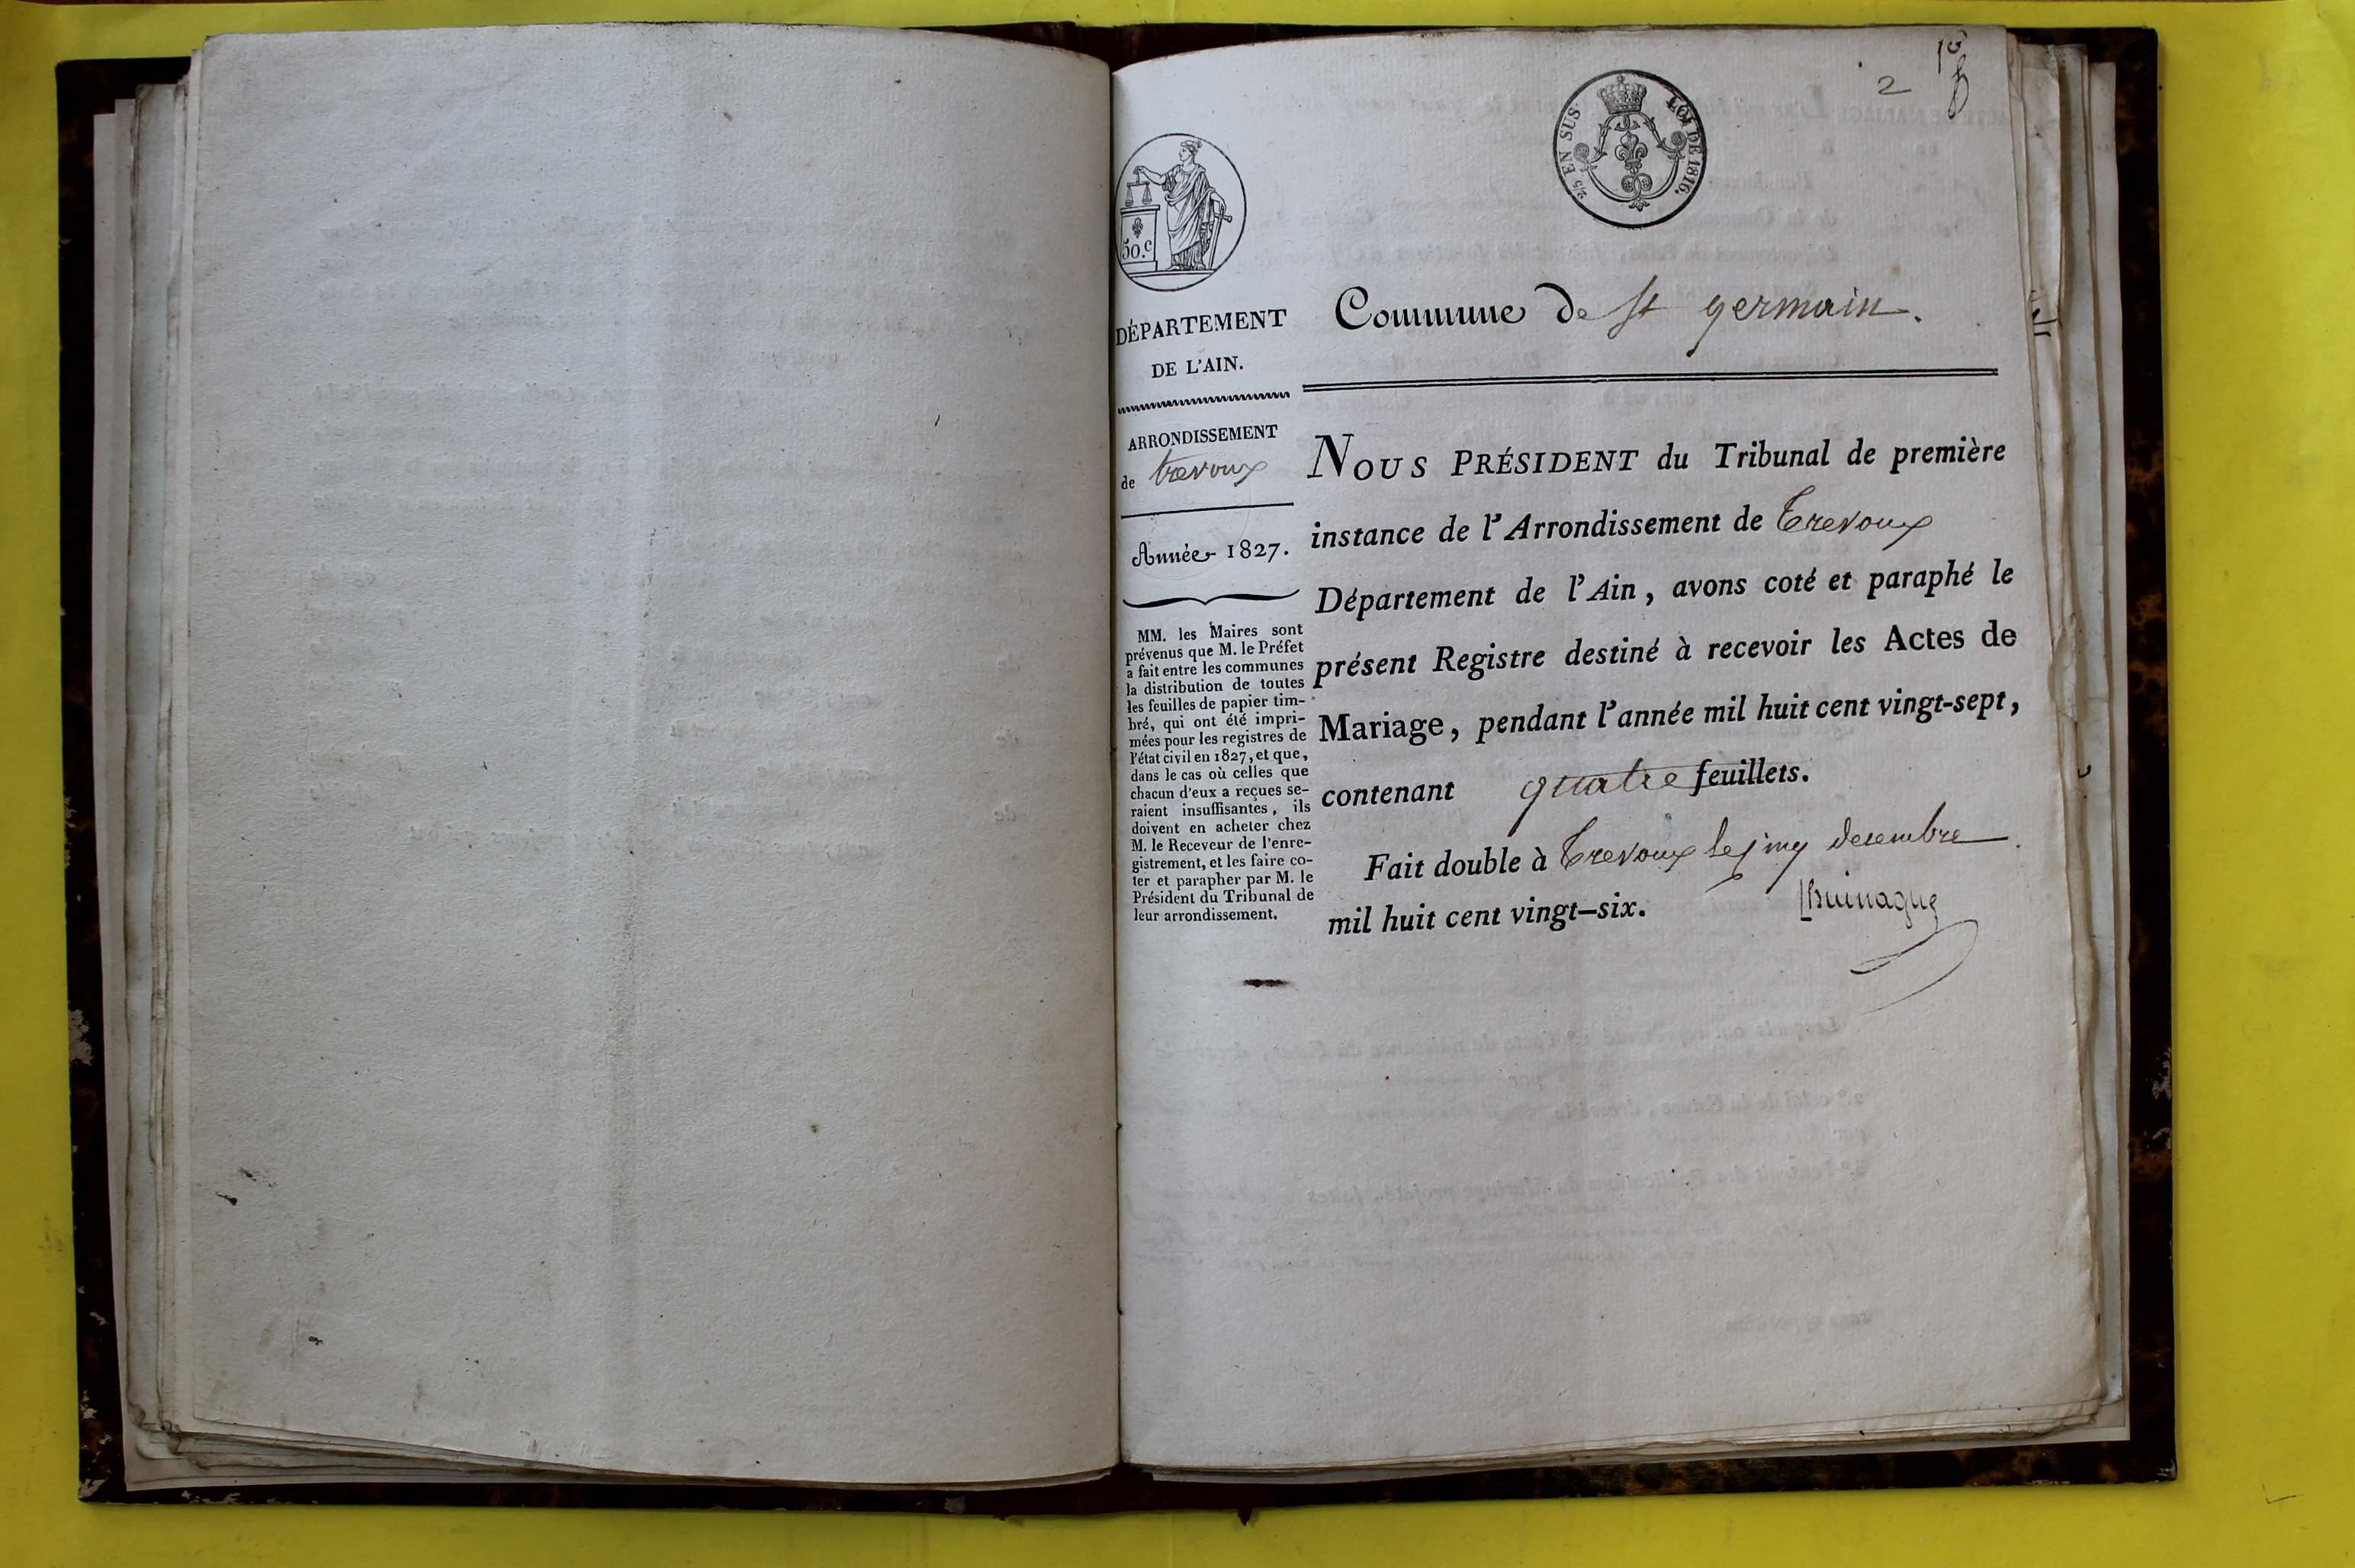 2
2/5 EN SUS.
LOI DE 1816.
50.c
DÉPARTEMENT
DE L'AIN.
ARRONDISSEMENT
de trevoux
Année 1827.
MM. les Maires sont
prévenus que M. le Préfet
a fait entre les communes
la distribution de toutes
les feuilles de papier tim-
bré, qui ont été impri-
mées pour les registres de
l'état civil en 1827, et que,
dans le cas où celles que
chacun d'eux a reçues se-
raient insuffisantes, ils
doivent en acheter chez
M. le Receveur de l'enre-
gistrement, et les faire co-
ter et parapher par M. le
Président du Tribunal de
leur arrondissement.
Commune de st germain.
NOUS PRÉSIDENT du Tribunal de première
instance de l'Arrondissement de Trevoux
Département de l'Ain, avons coté et paraphé le
présent Registre destiné à recevoir les Actes de
Mariage, pendant l'année mil huit cent vingt-sept,
contenant quatre feuillets.
Fait double à Trevoux le decembre
mil huit cent vingt-six.